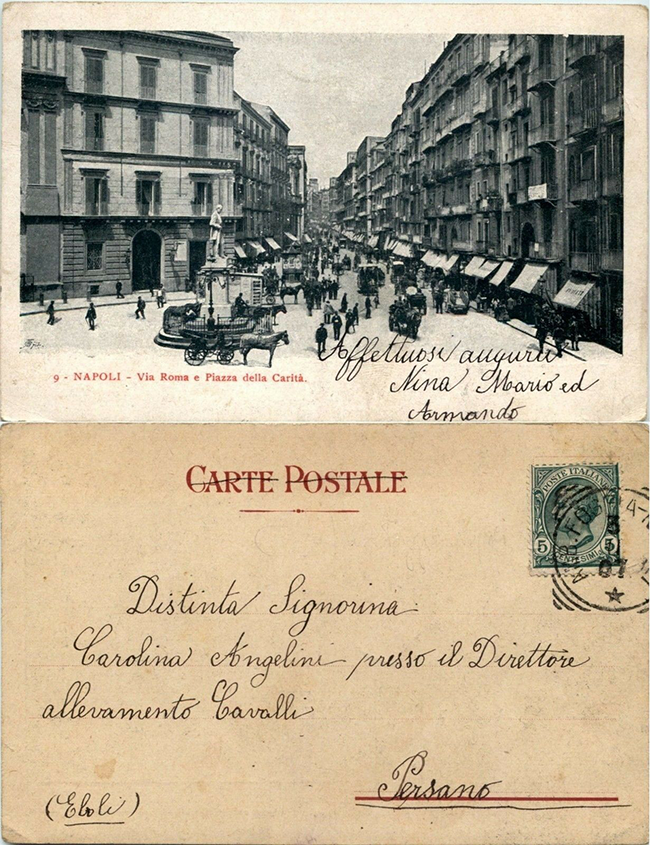 9 - NAPOLI - Via Roma e Piazza della Carità.
Affettuosi auguri
Nina Mario ed
Armando
CARTE POSTALE
POSTE ITALIANE
5 5
CENTESIMI
07
Distinta Signorina
Carolina Angelini presso il Direttore
allevamento Cavalli
Persano
(Eboli)